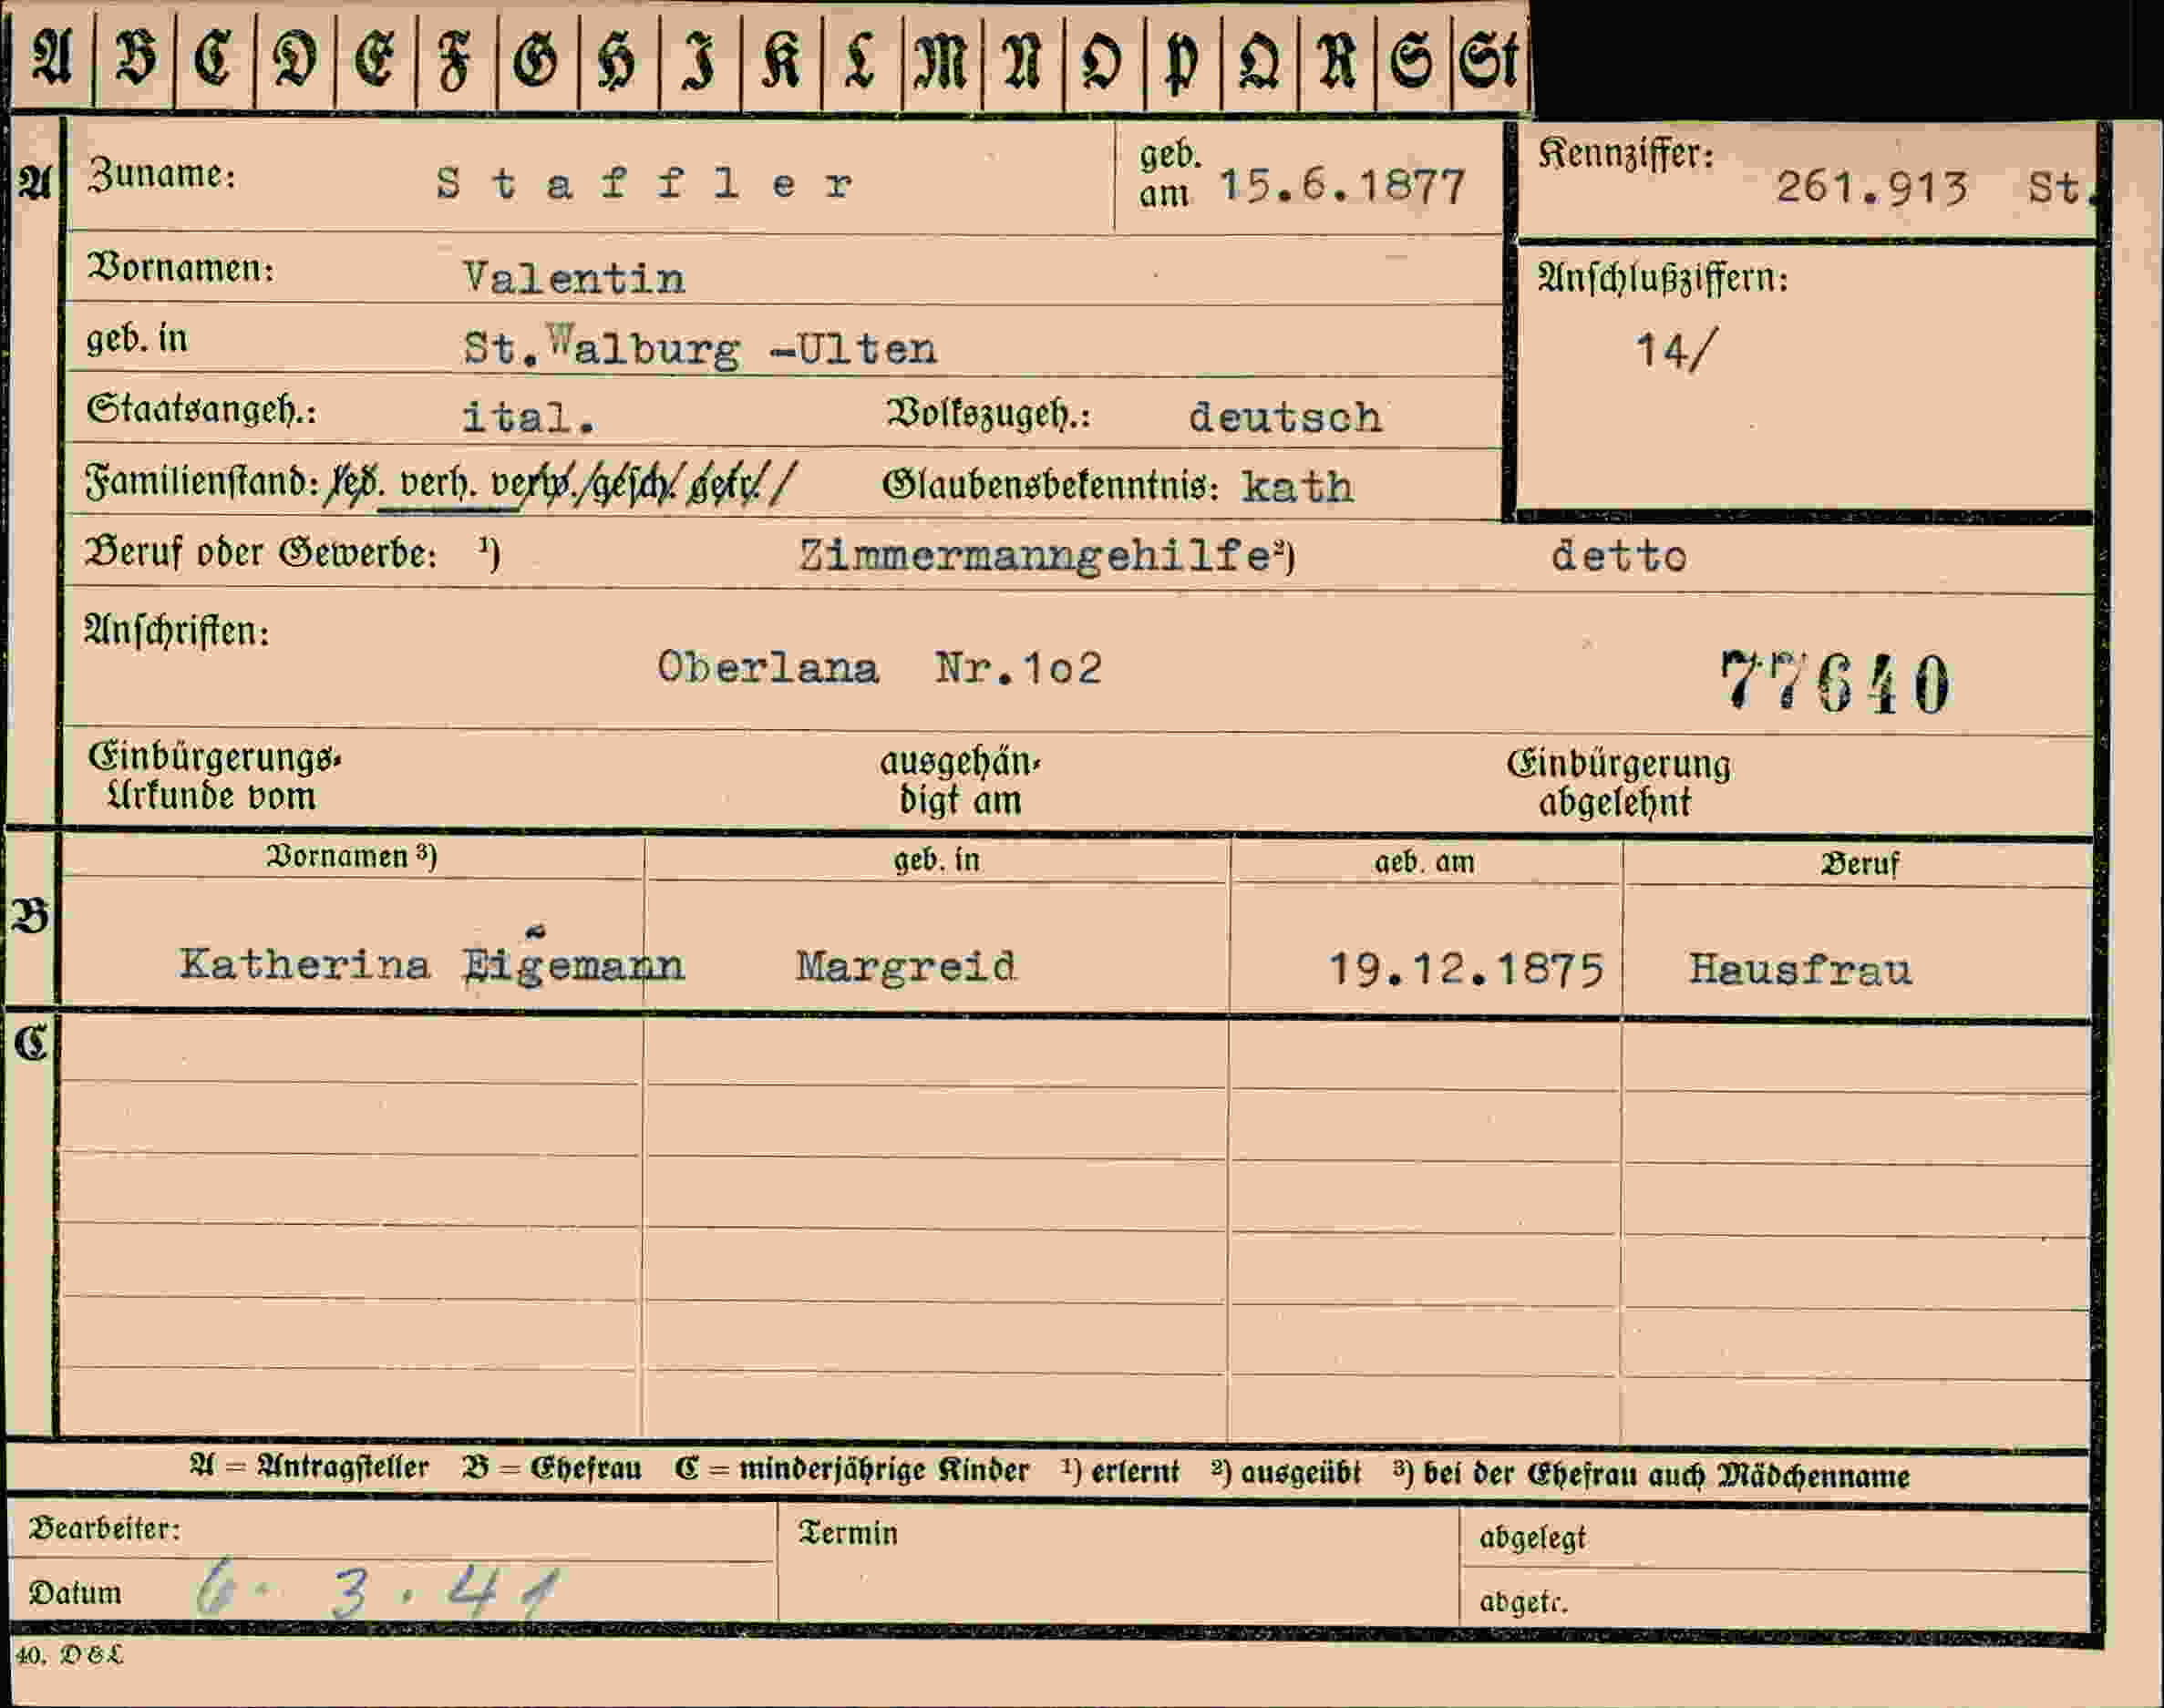 A B C D E F G H I K L M N O P Q R S St
A Zuname: Staffler geb. am 15.6.1877 Kennziffer: 261.913 St.
Vornamen: Valentin Anschlußziffern:
geb. in St.Walburg -Ulten 14/
Staatsangeh.: ital. Volkszugeh.: deutsch
Familienstand: led. verh. verw. gesch. getr. Glaubensbekenntnis: kath
Beruf oder Gewerbe: ¹) Zimmermanngehilfe²) detto
Anschriften:
Oberlana Nr.1o2 77640
Einbürgerungs- ausgehän- Einbürgerung
Urkunde vom digt am abgelehnt
Vornamen ³) geb. in geb. am Beruf
B
Katherina Eigemann Margreid 19.12.1875 Hausfrau
C
A = Antragsteller B = Ehefrau C = minderjährige Kinder ¹) erlernt ²) ausgeübt ³) bei der Ehefrau auch Mädchenname
Bearbeiter: Termin abgelegt
Datum 6. 3. 41 abgetr.
40. D&L